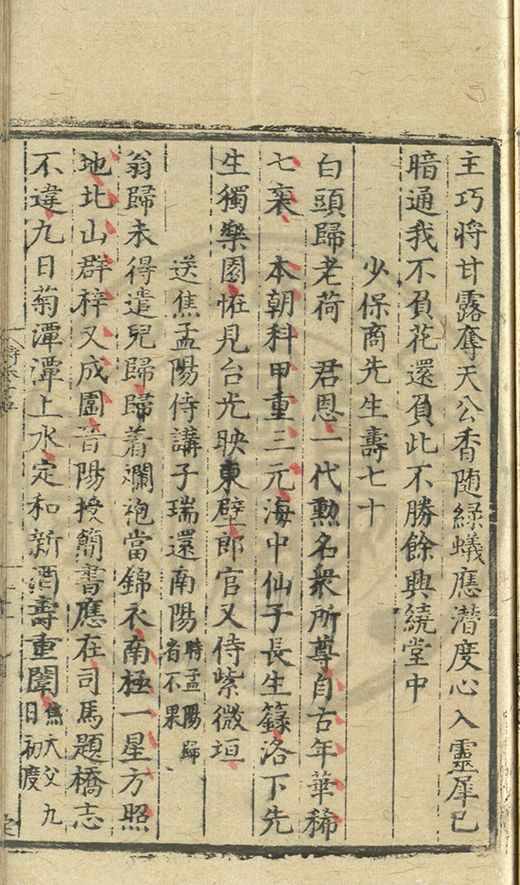 主巧將甘露奪天公香隨綠蟻應潛度心入靈犀已
暗通我不負花還負此不勝餘興繞堂中
少保商先生壽七十
白頭歸老荷　君恩一代勲名衆所尊自古年華稀
七袠　本朝科甲重三元海中仙子長生籙洛下先
生獨樂園恠見台光映東壁郎官又侍紫微垣
送焦孟陽侍講子瑞還南陽時孟陽歸省不果
翁歸未得遣兒歸歸着斕袍當錦衣南極一星方照
地北山群梓又成圍晉陽授簡書應在司馬題橋志
不違九日菊潭潭上水定和新酒壽重闈焦大父九日初度